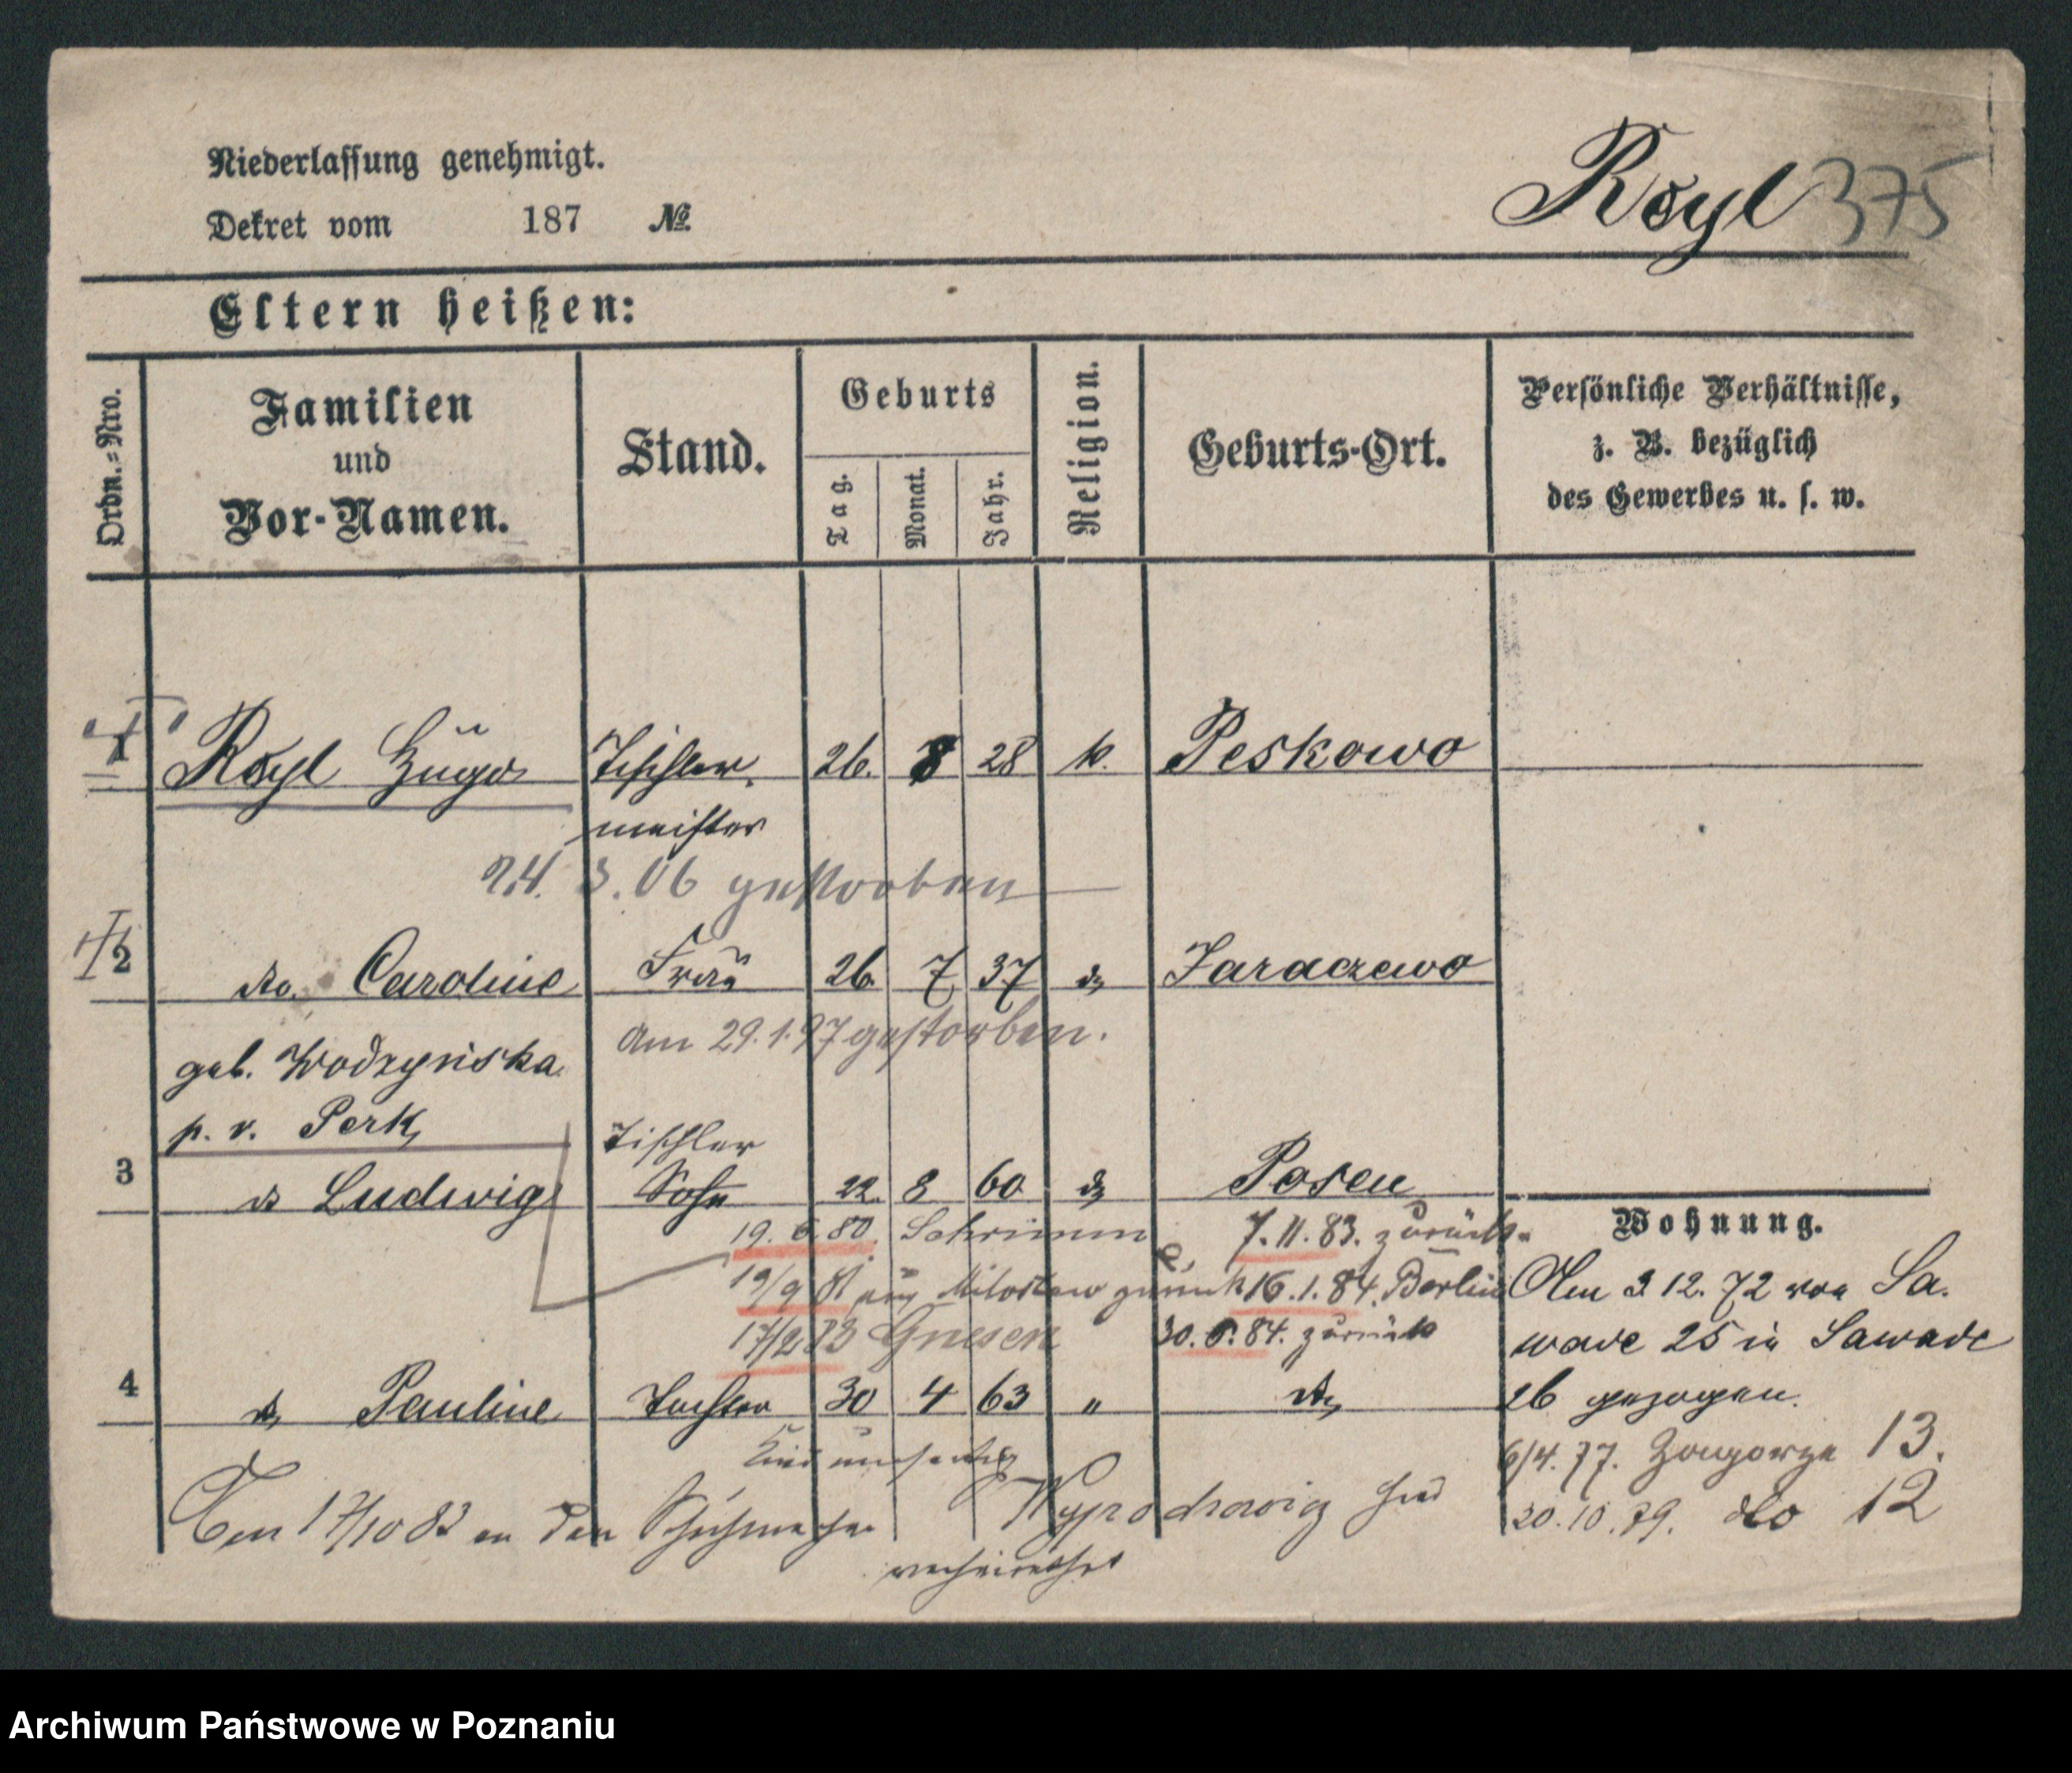 Niederlassung genehmigt.
Dekret vom 187 №
Royl 375
Eltern heißen:
Ordn.=Nro.
Familien
und
Vor-Namen.
Stand.
Geburts
Tag.
Monat.
Jahr.
Religion.
Geburts-Ort.
Persönliche Verhältnisse,
z. B. bezüglich
des Gewerbes u. s. w.
1 Royl Hugo Tischler- 26. 8 28 k. Peskowo
meister
24. 3. 06 gestorben
2 do. Caroline Frau 26. 7 37 do Jaraczewo
am 29.1.97 gestorben.
geb. Wodzyńska
p. v. Perk
Tischler
3 do Ludwig Sohn 22. 8 60 do Posen
19. 6 80. Schrimm 7. 11. 83. zurück.
19/9 81 aus Miloslaw zurück 16. 1. 84. Berlin
17/2 83 Gnesen 30. 6. 84. zurück
4 do Pauline Tochter 30 4 63 " do
Den 17/10 83 an den Schuhmacher
verheirathet
Wohnung.
Am 3 12. 72 von Sa.
wade 25 in Sawade
26 gezogen.
6/4. 77. Zagorze 13.
30. 10. 79. do 12
Archiwum Państwowe w Poznaniu